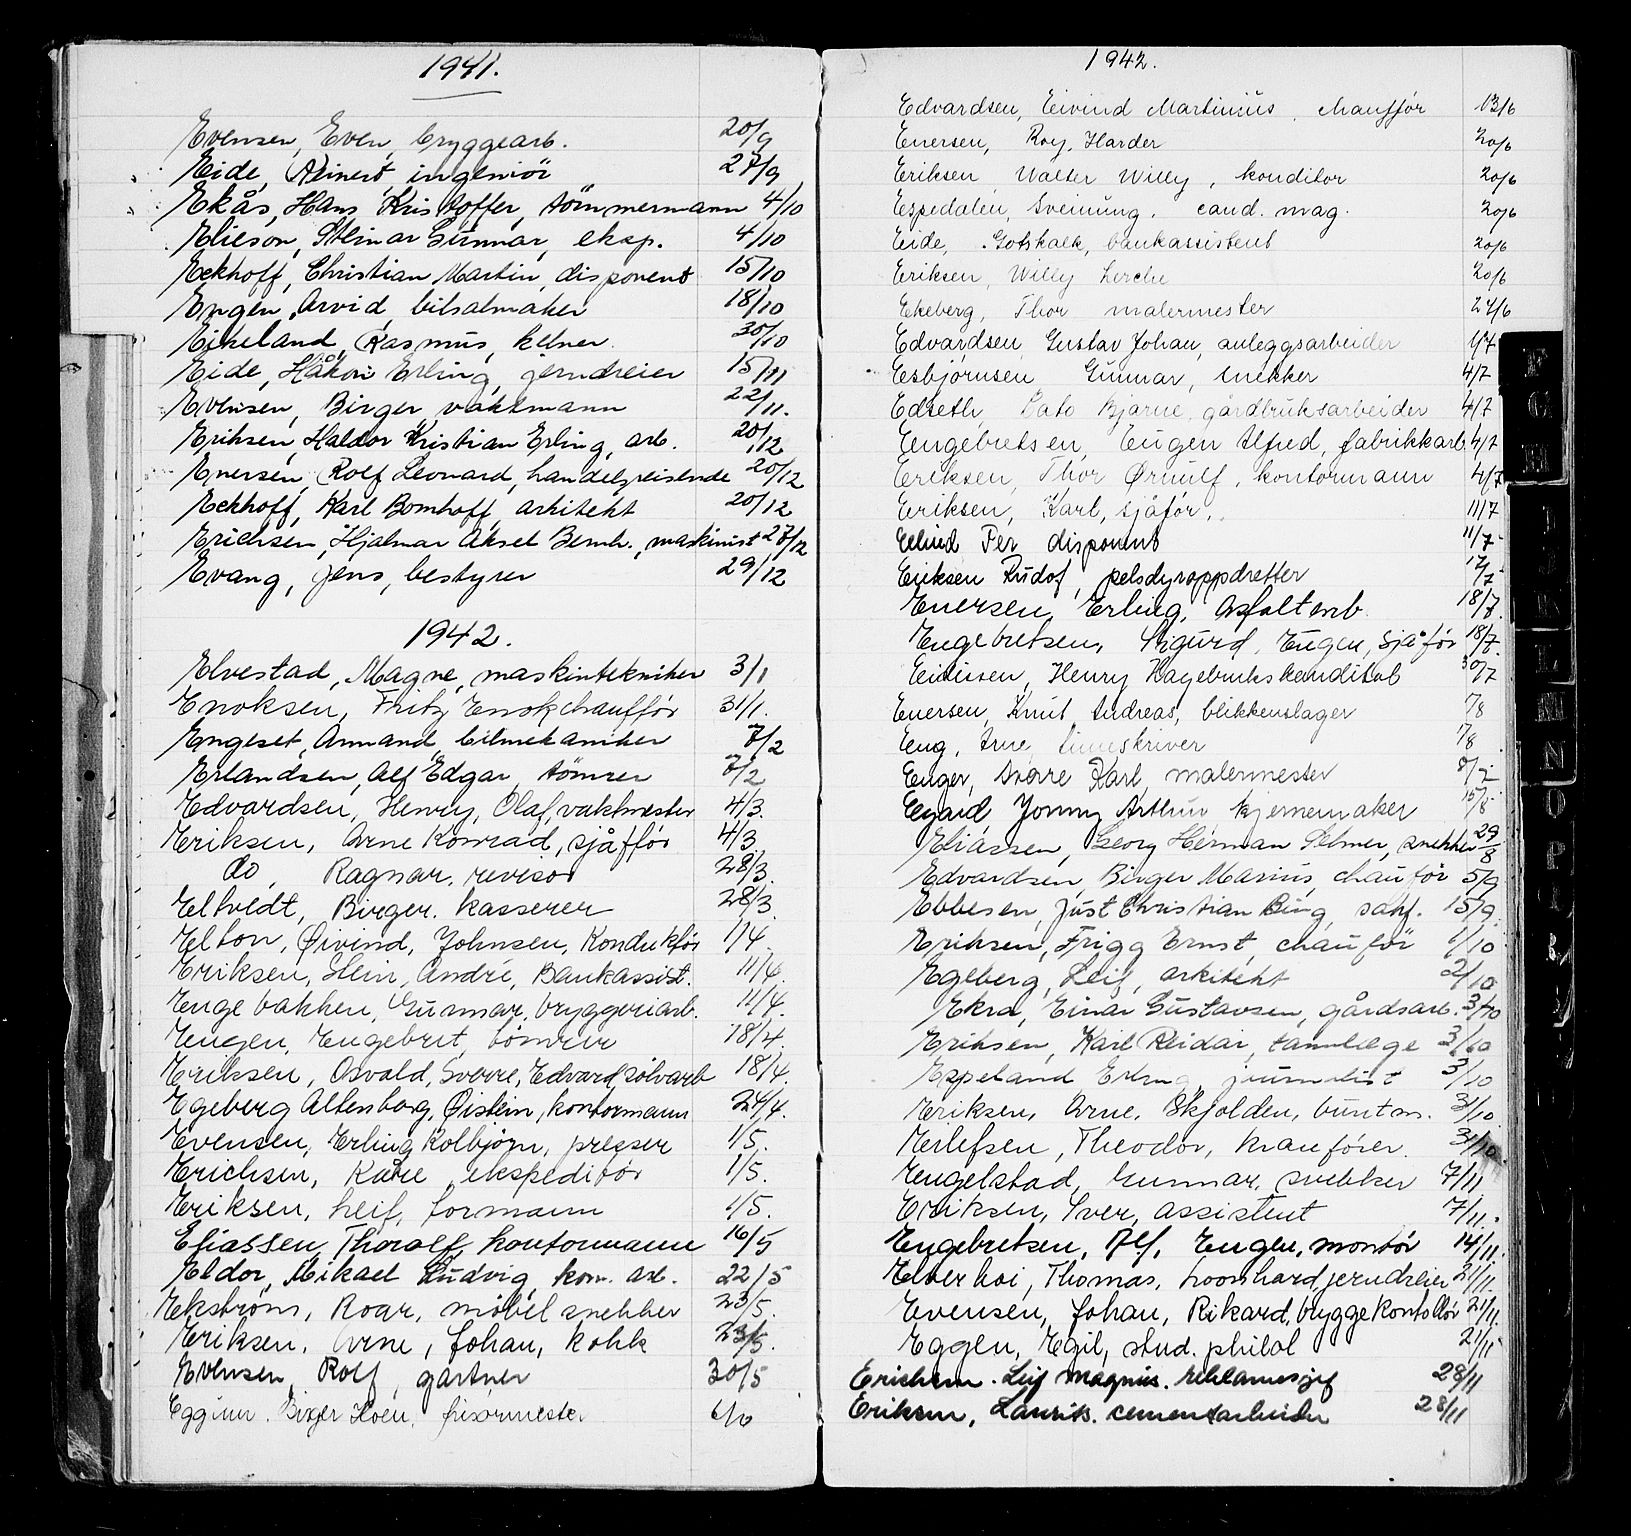 1941.
Evensen, Even, bryggearb. 20/9
Eide, Reinert ingeniör 27/9
Ekås, Hans Kristoffer, tömmermann 4/10
Elieson, Gunnar, eksp. 4/10
Eckhoff, Christian Martin, disponent 15/10
Engen, Arvid, bilsalmaker 18/10
Eikeland, Rasmus, kelner. 30/10
Eide, Håkon Erling, jerndreier 15/11
Evensen, Birger, vaktmann 22/11.
Eriksen, Haldor Kristian Erling, arb. 20/12
Enersen, Rolf Leonard, handelsreisende 20/12
Eckhoff, Karl Bomhoff, arkitekt 20/12
Erichsen, Hjalmar Aksel Bernh., maskinist 27/12
Evang, Jens, bestyrer 29/12
1942.
Elvestad, Magne, maskintekniker 3/1
Enoksen, Fritz Enok chaufför 31/1.
Engeset, Armand, bilmekaniker 7/2
Erlandsen, Alf Edgar, tömrer 7/2
Edvardsen, Henry, Olaf, vaktmester 4/3.
Eriksen, Arne Konrad, sjåffør 4/3.
do, Ragnar. revisor 28/3.
Eltvedt, Birger. kasserer 28/3.
Elton, Øivind, Johnsen, Konduktför 1/4.
Eriksen, Stein, André, Bankassist. 11/4.
Engebakken, Gunnar, bryggeriarb. 11/4.
Engen, Engebret, tömrer 18/4.
Eriksen, Osvald, Sverre, Edvard, sölvarb 18/4.
Egeberg Altenborg, Øistein, kontormann 24/4.
Evensen, Erling Kolbjørn, presser 1/5.
Erichsen, Kåre, ekspeditör 1/5.
Eriksen, Leif, formann 1/5.
Eliassen, Thoralf, kontormann 16/5
Eldor, Mikael Ludvig, kom. arb. 22/5
Ekstrøm, Roar, møbelsnekker 23/5.
Eriksen, Arne, Johan, kokk 23/5.
Evensen, Rolf, gartner 30/5
Birger Hoen, frisørmester 6/6
1942.
Edvardsen, Eivind Martinius, chaufför 13/6
Enersen, Roy. Harder 20/6
Eriksen, Walter Willy, konditor 20/6
Espedalen, Sveinung. cand. mag. 20/6
Eide, Gotskalk, bankassistent 20/6
Eriksen, Willy Lerche 20/6
Ekeberg, Thor malermester 24/6
Edvardsen Gustav Johan, anleggsarbeider 1/7
Esbjørnsen Gunnar, snekker 4/7
Edseth Cato Bjarne, gårdbruksarbeider 4/7
Engebretsen, Eugen Alfred, fabrikkarb. 4/7
Eriksen, Thor Ørnulf, kontormann 4/7
Eriksen, Karl, sjåför. 11/7
Per disponent 11/7
Eriksen Rudof, pelsdyroppdretter
Enersen, Erling, Asfaltarb. 18/7.
Engebretsen, Sigurd, Eugen, sjåför 18/7.
Henry Hagebrukskandidat 30/7
Enersen, Knut Andreas, blikkenslager 1/8
Eng, Arne, 1/8
Enger, Sverre Karl, malermester
Egard, Jonny Arthur kjernemaker 15/8
Eliassen, Georg Herman Selmer, snekker 29/8
Edvardsen, Birger Marius, chauför 5/9
Ebbesen, Just Christian Bing, sakf. 15/9.
Eriksen, Frigg Ernst, chauför 1/10
Egeberg, Leif, arkitekt 2/10
Ekra, Einar Gustavsen, gårdsarb. 3/10
Eriksen, Karl Reidar, tannlæge 3/10
Eppeland Erling, journalist 3/10
Eriksen, Arne, Skjolden, buntm. 31/10.
Erlefsen, Theodor, kranfører. 31/10.
Engelstad, Gunnar, snekker 7/11
Eriksen, Iver, assistent 7/11.
Engebretsen, Alf, Eugen, montör 14/11.
Elverhoi, Thomas, Leonhard, jerndreier 21/11.
Evensen, Johan, Rikard, bryggekontrollör 21/11.
Eggen, Egil, stud. philol 21/11
Erichsen. Leif Magnus. reklamesjef 28/11
Eriksen, Laurits. cementarbeider 28/11
F
G
H
I
J
K
L
M
N
O
P
R